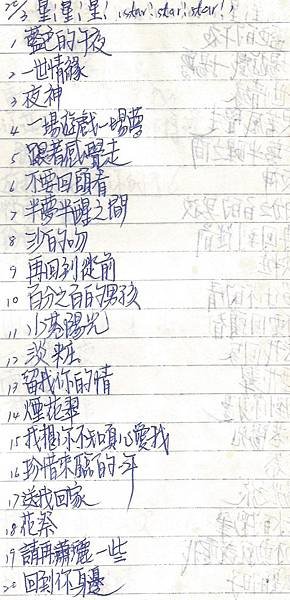 20/3 星!星!星! (star! star! star!)
1 藍色的午夜
2 一世情緣
3 夜神
4 一場遊戲一場夢
5 跟著感覺走
6 不要回頭看
7 半夢半醒之間
8 沙的吻
9 再回到從前
10 百分之百的男孩
11 小葉陽光
12 淡粧
13 留我你的情
14 煙花翠
15 我想你不知真心愛我
16 珍惜來臨的一年
17 送我回家
18 花祭
19 請再蕭灑一些
20 回到你身邊